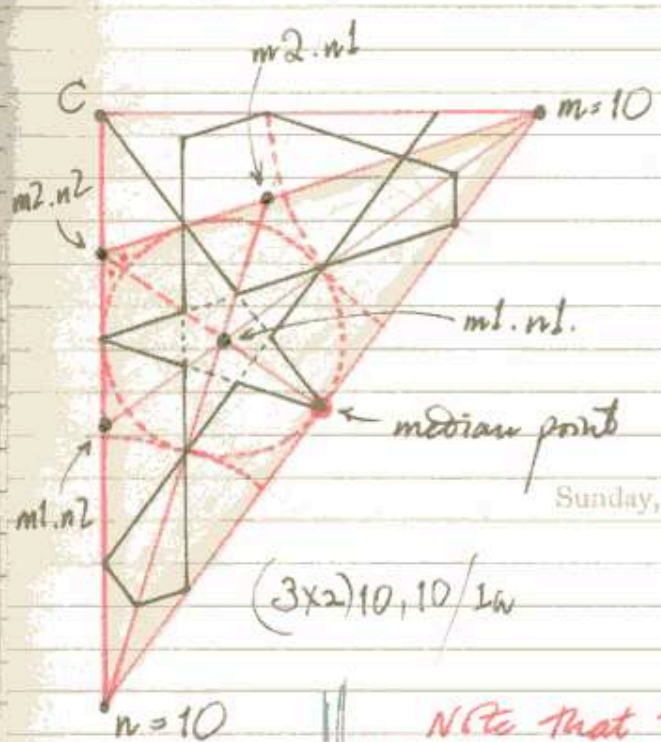 m2.n1
C
m=10
m2.n2
m1.n1.
median point
m1.n2
Sunday,
(3x2)10,10/1a
n=10
Note that